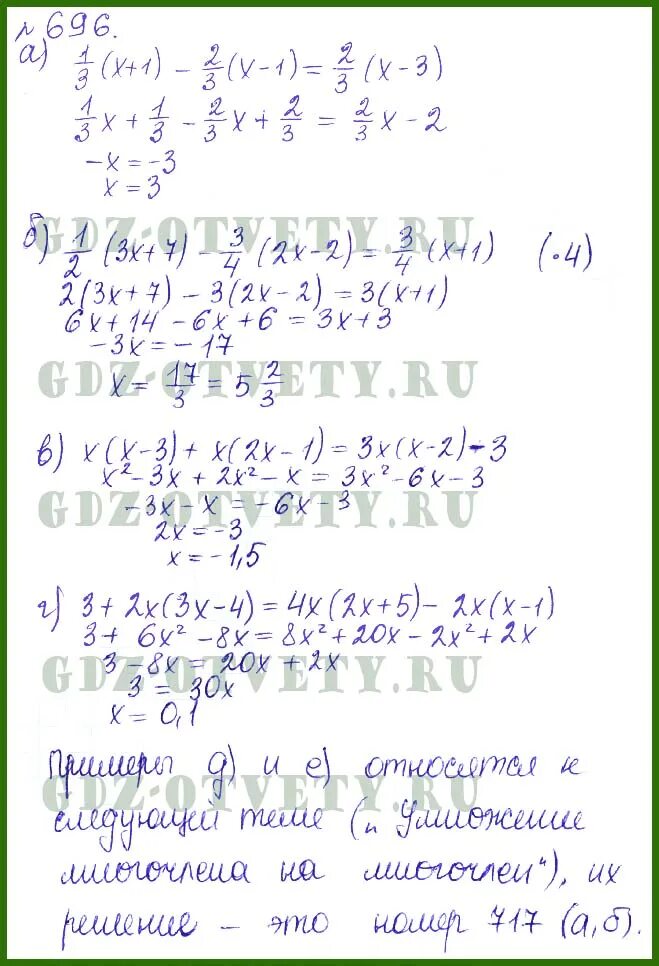 № 696.
а) 1/3 (x+1) − 2/3 (x−1) = 2/3 (x−3)
1/3 x + 1/3 − 2/3 x + 2/3 = 2/3 x − 2
−x = −3
x = 3
GDZ-OTVETY.RU
б) 1/2 (3x+7) − 3/4 (2x−2) = 3/4 (x+1) (·4)
2(3x+7) − 3(2x−2) = 3(x+1)
6x+14 − 6x+6 = 3x+3
−3x = −17
GDZ-OTVETY.RU
x = 17/3 = 5 2/3
в) x(x−3) + x(2x−1) = 3x(x−2)−3
x²−3x + 2x² − x = 3x² − 6x − 3
−3x − x = −6x − 3
GDZ-OTVETY.RU
2x = −3
x = −1,5
г) 3 + 2x(3x−4) = 4x(2x+5) − 2x(x−1)
3 + 6x² − 8x = 8x² + 20x − 2x² + 2x
3 − 8x = 20x + 2x
GDZ-OTVETY.RU
3 = 30x
x = 0,1
Примеры д) и е) относятся к
GDZ-OTVETY.RU
следующей теме („Умножение
многочлена на многочлен“), их
решение – это номер 717 (а,б).
GDZ-OTVETY.RU